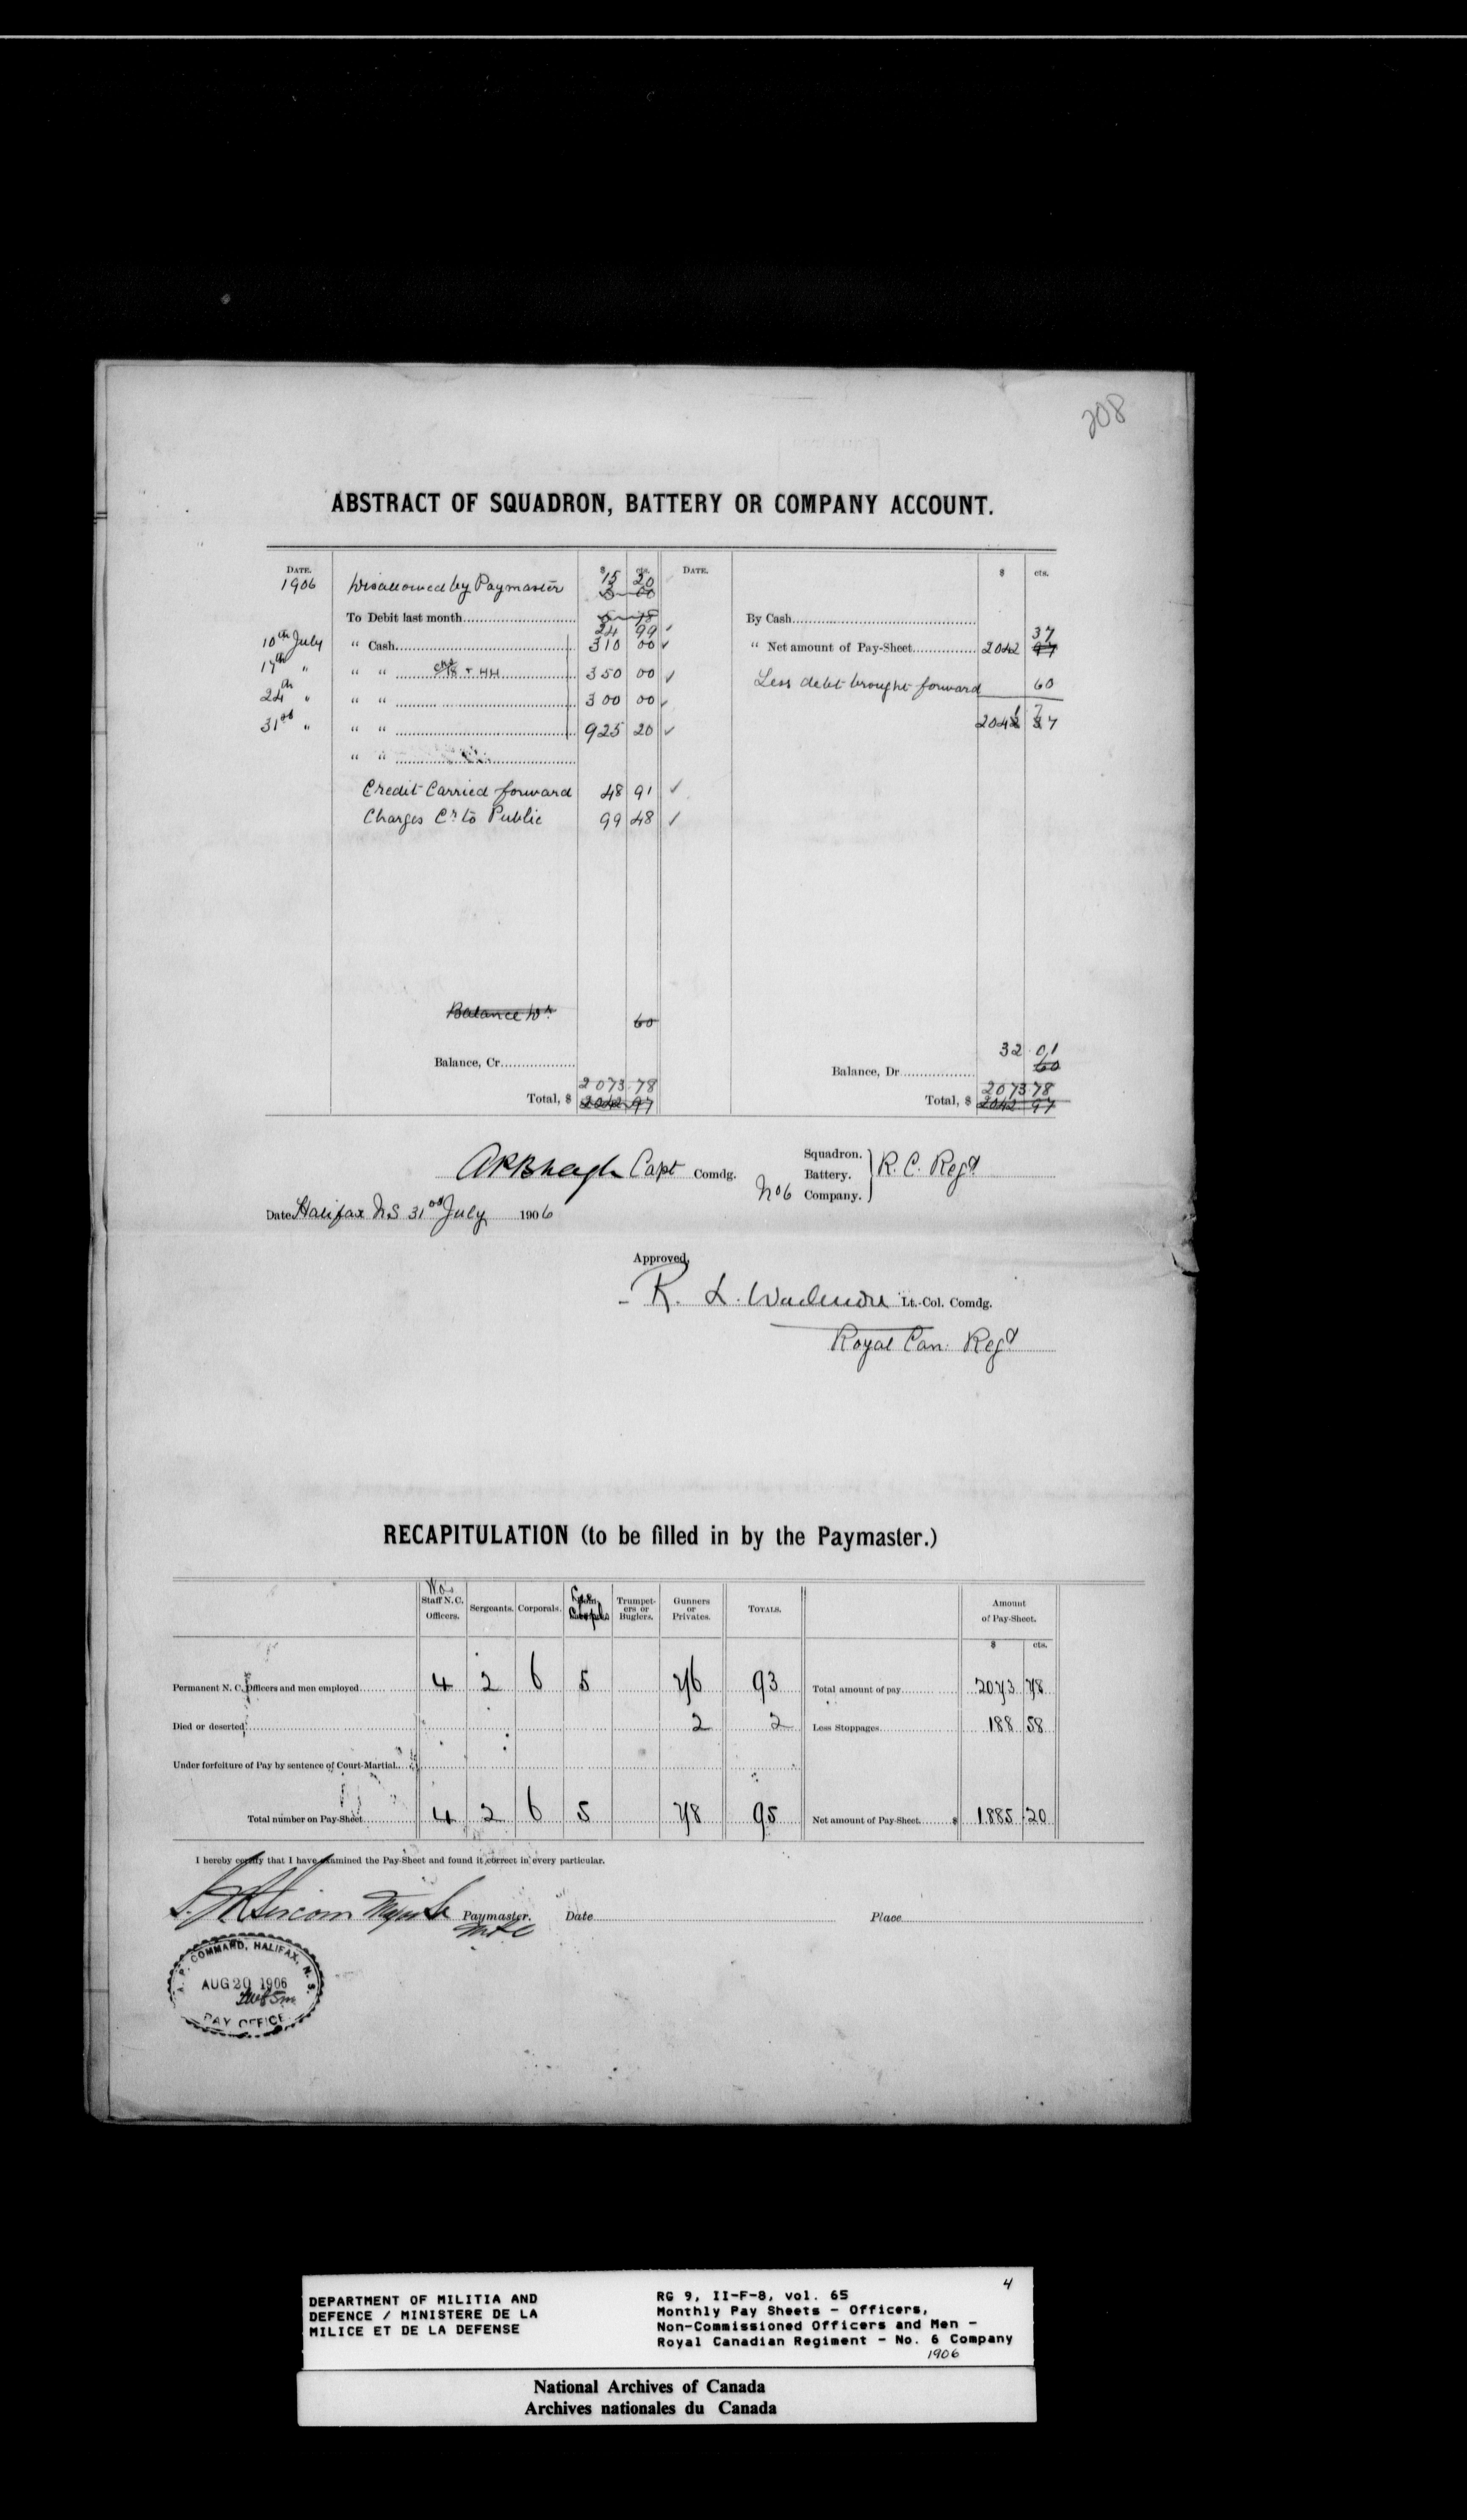 208
ABSTRACT OF SQUADRON, BATTERY OR COMPANY ACCOUNT.
DATE. $ cts. DATE. $ cts.
1906 Disallowed by Paymaster 15 20
To Debit last month 24 99 By Cash
10th July " Cash 310 00 " Net amount of Pay-Sheet 2042 97 37
17th " " " 350 00 Less debt brought forward 60
24th " " " 300 00
31st " " " 925 20 2041 77
" "
Credit Carried forward 48 91
Charges Cr to Public 99 48
Balance Dr 60
32 01
Balance, Cr. Balance, Dr. 60
2073 78 2073 78
Total, $ 2042 97 Total, $ 2042 97
Capt Comdg. Squadron. Battery. No 6 Company. } R. C. Regt
Date Halifax N S 31st July 1906
Approved,
R. L. Wadmore Lt.-Col. Comdg.
Royal Can. Regt
RECAPITULATION (to be filled in by the Paymaster.)
Staff N. C. Officers. Sergeants. Corporals. Trumpeters or Buglers. Gunners or Privates. TOTALS. Amount of Pay-Sheet.
$ cts.
Permanent N. C. Officers and men employed 4 2 6 5 76 93 Total amount of pay 2073 78
Died or deserted 2 2 Less Stoppages 188 58
Under forfeiture of Pay by sentence of Court-Martial
Total number on Pay-Sheet 4 2 6 5 78 95 Net amount of Pay-Sheet $ 1885 20
I hereby certify that I have examined the Pay-Sheet and found it correct in every particular.
Paymaster. Date Place
COMMAND, HALIFAX, N. S.
AUG 20 1906
PAY OFFICE
4
DEPARTMENT OF MILITIA AND
DEFENCE / MINISTERE DE LA
MILICE ET DE LA DEFENSE
RG 9, II-F-8, vol. 65
Monthly Pay Sheets - Officers,
Non-Commissioned Officers and Men -
Royal Canadian Regiment - No. 6 Company
1906
National Archives of Canada
Archives nationales du Canada